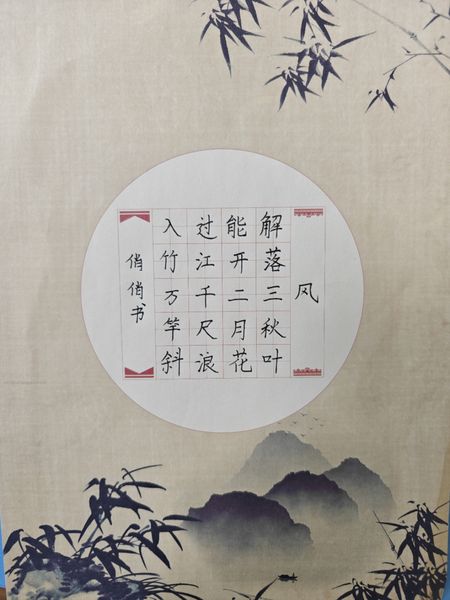 风
解落三秋叶
能开二月花
过江千尺浪
入竹万竿斜
俏俏书